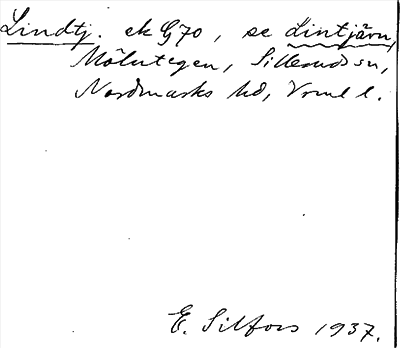 Lindtj. ek G70, se Lintjärn,
Mölntegen, Sillerud sn,
Nordmarks hd, Vrml l.
E. Silfors 1937.